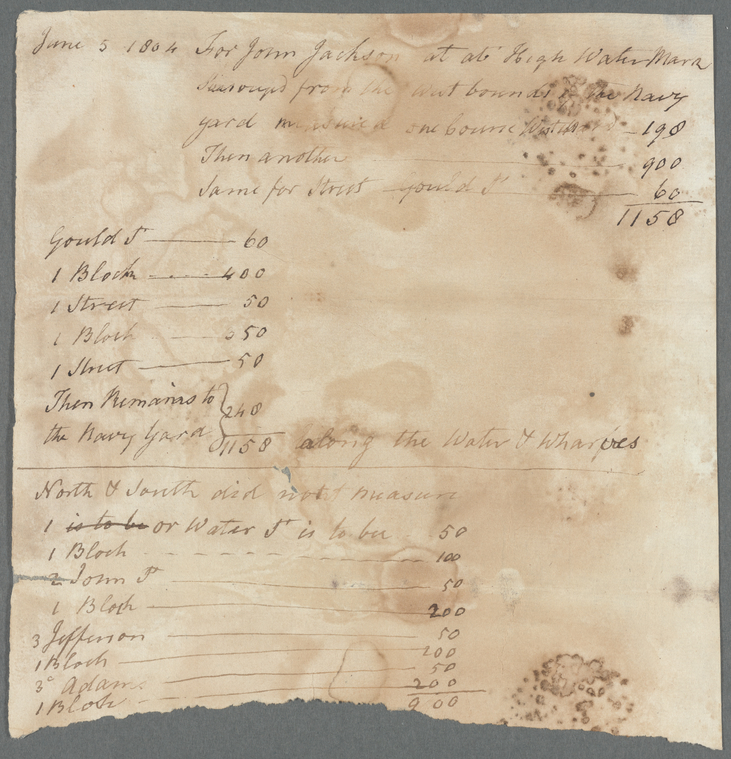 June 5 1804 For John Jackson at at High Water Mark
Survey'd from the west bounds of the Navy
yard measured one Course Westward - 198
Then another 900
Same for Street Gould St 60
1158
Gould St 60
1 Block 400
1 Street 50
1 Block 350
1 Street 50
Then Remains to 248
the Navy Yard 1158 along the Water & Wharfes
North & South did not measure
1 is to be or Water St is to be 50
1 Block 100
2 John St 50
1 Block 200
3 Jefferson 50
1 Block 200
3 Adams 50
1 Block 200
900